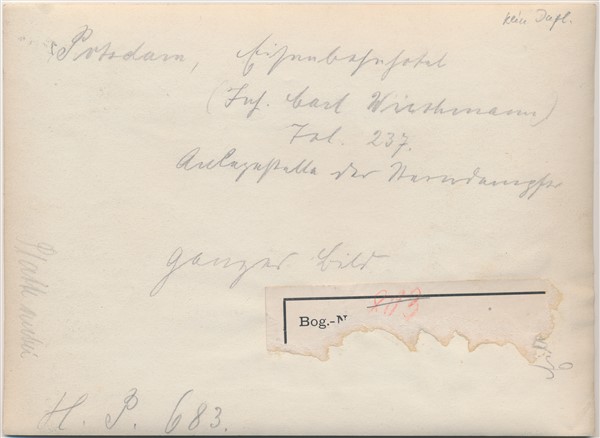 kein Dupl.
Potsdam, Eisenbahnhotel
(Inh. Carl Wiethmann)
Tel. 237.
Anlegestelle der Sterndampfer
ganzes Bild
Bog.-N
203
H. P. 683.